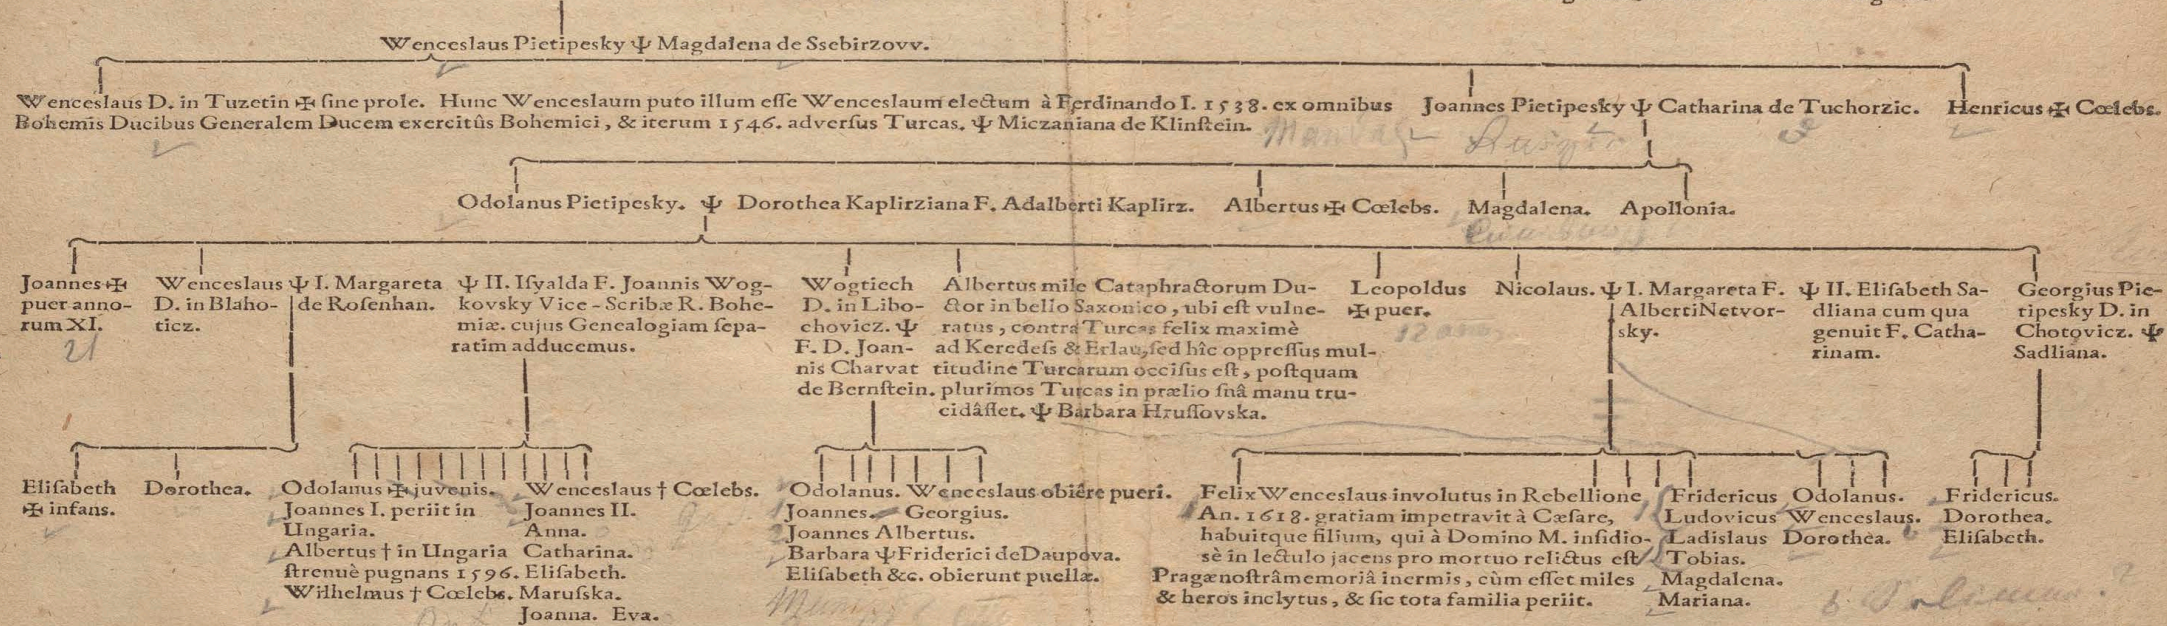 Wenceslaus Pietipesky Ψ Magdalena de Ssebirzovv.
Wenceslaus D. in Tuzetin ✠ ſine prole. Hunc Wenceslaum puto illum eſſe Wenceslaum electum à Ferdinando I. 1538. ex omnibus
Bohemis Ducibus Generalem Ducem exercitûs Bohemici, & iterum 1546. adverſus Turcas. Ψ Miczaniana de Klinſtein.
Joannes Pietipesky Ψ Catharina de Tuchorzic.
Henricus ✠ Cœlebs.
Odolanus Pietipesky. Ψ Dorothea Kaplirziana F. Adalberti Kaplirz.
Albertus ✠ Cœlebs.
Magdalena.
Apollonia.
Joannes ✠
puer anno-
rum XI.
21
Wenceslaus
D. in Blaho-
ticz.
Ψ I. Margareta
de Roſenhan.
Ψ II. Iſyalda F. Joannis Wog-
kovsky Vice-Scribæ R. Bohe-
miæ. cujus Genealogiam ſepa-
ratim adducemus.
Wogtiech
D. in Libo-
chovicz. Ψ
F. D. Joan-
nis Charvat
de Bernſtein.
Albertus mile Cataphractorum Du-
ctor in bello Saxonico, ubi eſt vulne-
ratus, contra Turcas felix maximè
ad Keredeſs & Erlau, ſed hîc oppreſſus mul-
titudine Turcarum occiſus eſt, poſtquam
plurimos Turcas in prælio ſuâ manu tru-
cidâſſet. Ψ Barbara Hruſſovska.
Leopoldus
✠ puer.
Nicolaus.
Ψ I. Margareta F.
Alberti Netvor-
sky.
Ψ II. Eliſabeth Sa-
dliana cum qua
genuit F. Catha-
rinam.
Georgius Pie-
tipesky D. in
Chotovicz. Ψ
Sadliana.
Eliſabeth
✠ infans.
Dorothea.
Odolanus ✠ juvenis.
Joannes I. periit in
Ungaria.
Albertus † in Ungaria
ſtrenuè pugnans 1596.
Wilhelmus † Cœlebs.
Wenceslaus † Cœlebs.
Joannes II.
Anna.
Catharina.
Eliſabeth.
Maruſska.
Joanna. Eva.
Odolanus. Wenceslaus obiêre pueri.
Joannes. Georgius.
Joannes Albertus.
Barbara Ψ Friderici de Daupova.
Eliſabeth &c. obierunt puellæ.
Felix Wenceslaus involutus in Rebellione
An. 1618. gratiam impetravit à Cæſare,
habuitque filium, qui à Domino M. inſidio-
sè in lectulo jacens pro mortuo relictus eſt
Pragæ noſtrâ memoriâ inermis, cùm eſſet miles
& heros inclytus, & ſic tota familia periit.
Fridericus
Ludovicus
Ladislaus
Tobias.
Magdalena.
Mariana.
Odolanus.
Wenceslaus.
Dorothea.
Fridericus.
Dorothea.
Eliſabeth.